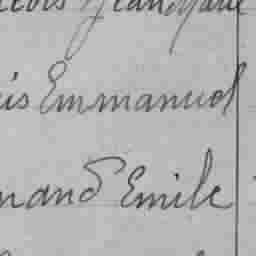 Jean Marie
is Emmanuel
nand Emile